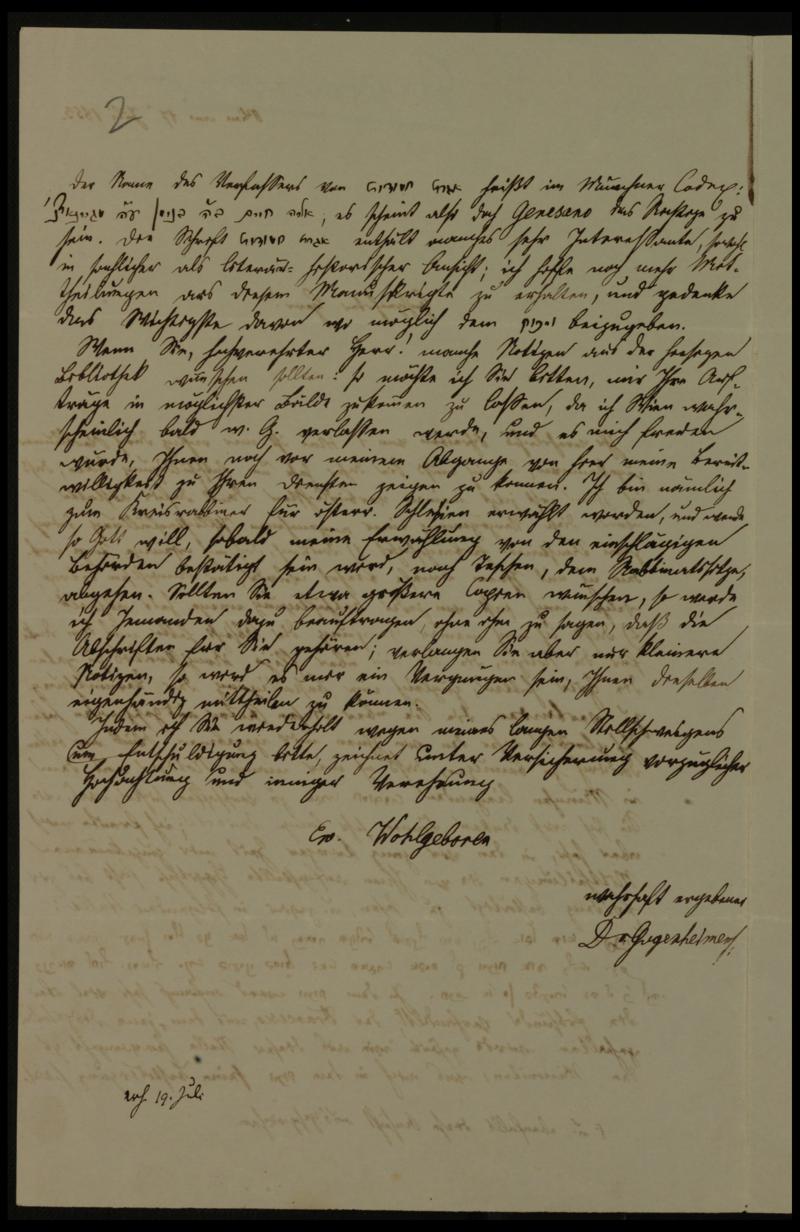 2
Der Name des Verfassers von אגרת חמודות heißt im Münchner Codex:
אליה חיים בה״ר בנימן ע״ה; es scheint also doch Genesano das Richtige zu
sein. Die Schrift אגרת חמודות enthält manches sehr Interessante, sowohl
in sachlicher als literar-historischer Ansicht; ich hoffe noch mehr Mit-
theilungen aus diesem Manuskripte zu erhalten, und gedenke
das Wichtigste davon wo möglich dem beizugeben.
Wenn Sie, hochverehrter Herr! manche Notizen aus der hiesigen
Bibliothek wünschen sollten: so möchte ich Sie bitten, mir Ihre Auf-
träge in möglichster Bälde zukommen zu lassen, da ich Wien wahr-
scheinlich bald w. G. verlassen werde, und es mich freuen
würde, Ihnen noch vor meinem Abgange von hier meine Bereit-
willigkeit zu Ihren Diensten zeigen zu können. Ich bin nämlich
zum Kreisrabbiner für österr. Schlesien erwählt worden, und werde
so Gott will, sobald meine Erwählung von den einschlägigen
Behörden bestätigt sein wird, nach Teschen, dem Rabbinatssitze,
abgehen. Sollten Sie etwa größere Copien wünschen, so werde
ich Jemanden dazu beauftragen, ohne ihm zu sagen, daß die
Abschriften für Sie gehören; verlangen Sie aber nur kleinere
Notizen, so wird es mir ein Vergnügen sein, Ihnen dieselben
eigenhändig mittheilen zu können.
Indem ich Sie wiederholt wegen meines langen Stillschweigens
um Entschuldigung bitte, zeichnet unter Versicherung vorzüglicher
Hochachtung und inniger Verehrung
Ew. Wohlgeboren
wahrhaft ergebener
Dr Gugenheimer
erh. 19. Juli